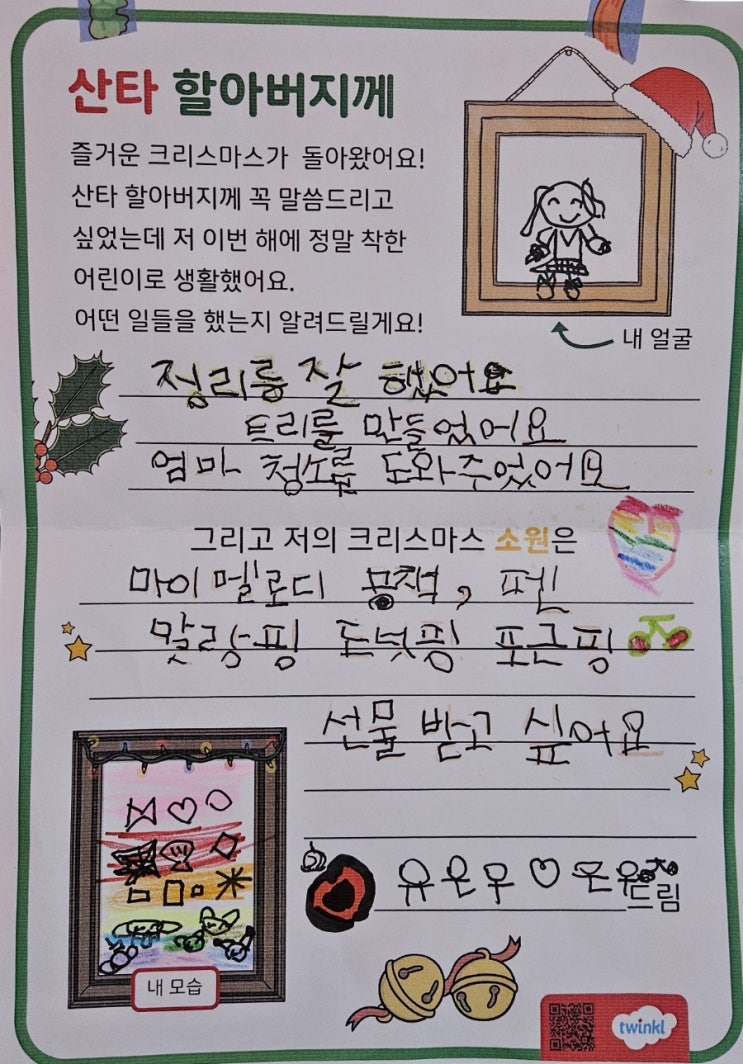 산타 할아버지께
즐거운 크리스마스가 돌아왔어요!
산타 할아버지께 꼭 말씀드리고
싶었는데 저 이번 해에 정말 착한
어린이로 생활했어요.
어떤 일들을 했는지 알려드릴게요!
내 얼굴
정리를 잘 했어요
트리를 만들었어요
엄마 청소를 도와주었어요
그리고 저의 크리스마스 소원은
마이멜로디 공책, 펜
말랑핑 도넛핑 포근핑
선물 받고 싶어요
유은우 ♡
드림
내 모습
twinkl